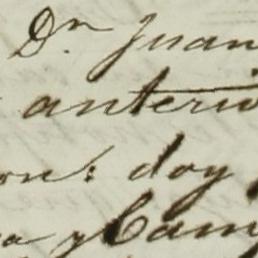 Dn Juan
anterio
on: doy
a y Cam